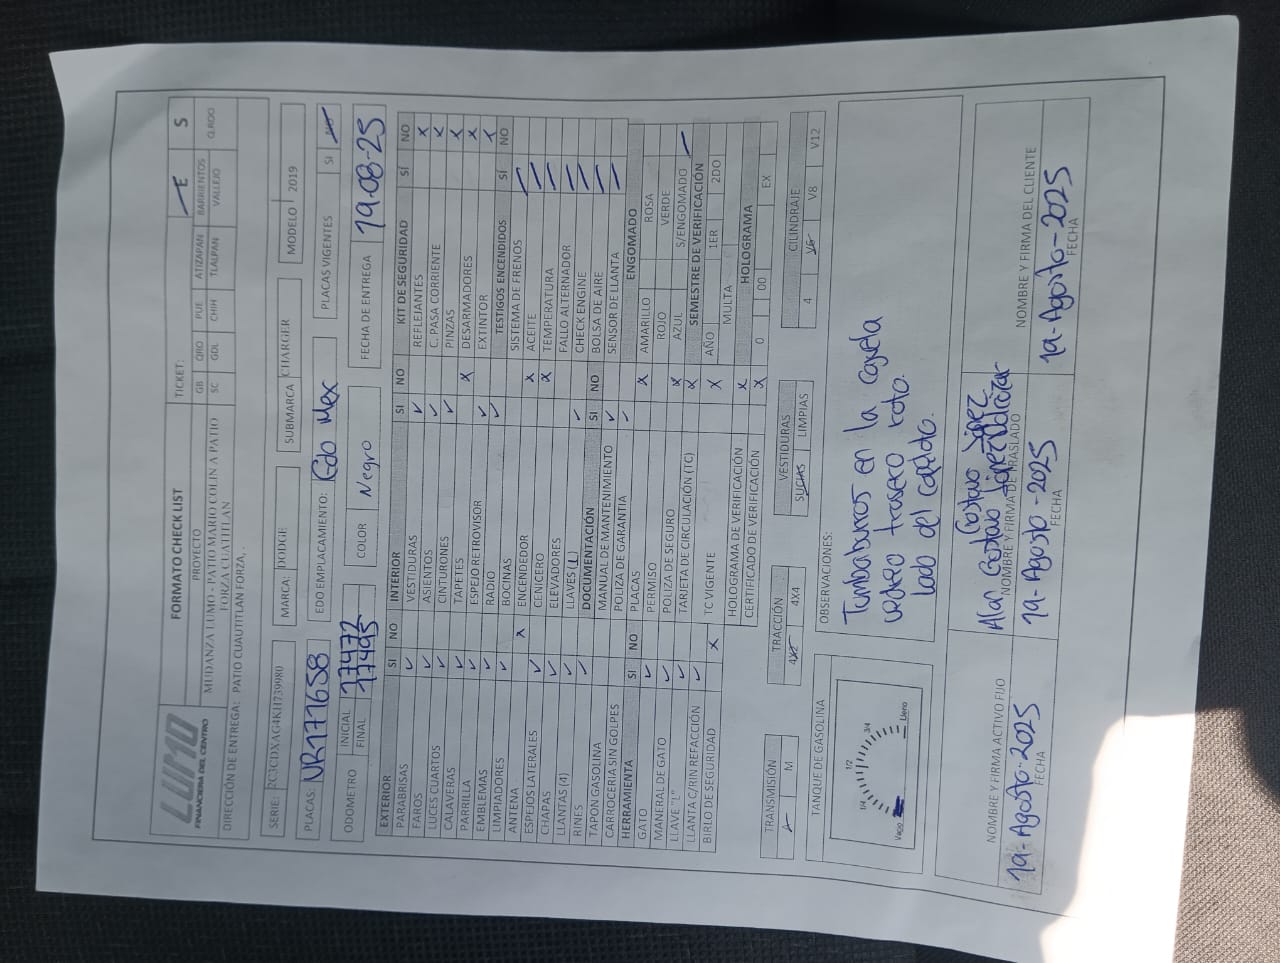 FORMATO CHECK LIST
TICKET:
E
S
LUMO
FINANCIERA DEL CENTRO
PROYECTO
GB QRO PUE ATIZAPAN BARRIENTOS
SC GDL CHIH TLALPAN VALLEJO
MUDANZA LUMO - PATIO MARIO COLIN A PATIO FORZA CUATITLAN
DIRECCIÓN DE ENTREGA: PATIO CUAUTITLAN FORZA, .
SERIE: 2C3CDXAG4KH739980 MARCA: DODGE SUBMARCA CHARGER MODELO 2019
PLACAS: NR171658 EDO EMPLACAMIENTO: Edo Mex PLACAS VIGENTES SI NO
ODOMETRO INICIAL 17472
FINAL 17495
COLOR Negro FECHA DE ENTREGA 19-08-25
EXTERIOR SI NO
PARABRISAS ✓
FAROS ✓
LUCES CUARTOS ✓
CALAVERAS ✓
PARRILLA ✓
EMBLEMAS ✓
LIMPIADORES ✓
ANTENA x
ESPEJOS LATERALES ✓
CHAPAS ✓
LLANTAS (4) ✓
RINES ✓
TAPON GASOLINA
CARROCERIA SIN GOLPES
HERRAMIENTA SI NO
GATO ✓
MANERAL DE GATO ✓
LLAVE "L" ✓
LLANTA C/RIN REFACCIÓN ✓
BIRLO DE SEGURIDAD x
INTERIOR SI NO
VESTIDURAS ✓
ASIENTOS ✓
CINTURONES ✓
TAPETES x
ESPEJO RETROVISOR ✓
RADIO ✓
BOCINAS
ENCENDEDOR x
CENICERO x
ELEVADORES
LLAVES (1) ✓
DOCUMENTACIÓN SI NO
MANUAL DE MANTENIMIENTO ✓
POLIZA DE GARANTIA ✓
PLACAS x
PERMISO
POLIZA DE SEGURO x
TARJETA DE CIRCULACIÓN (TC) x
TC VIGENTE x
HOLOGRAMA DE VERIFICACIÓN x
CERTIFICADO DE VERIFICACIÓN x
KIT DE SEGURIDAD SÍ NO
REFLEJANTES x
C. PASA CORRIENTE x
PINZAS x
DESARMADORES x
EXTINTOR x
TESTIGOS ENCENDIDOS SÍ NO
SISTEMA DE FRENOS /
ACEITE /
TEMPERATURA /
FALLO ALTERNADOR /
CHECK ENGINE /
BOLSA DE AIRE /
SENSOR DE LLANTA /
ENGOMADO
AMARILLO ROSA
ROJO VERDE
AZUL S/ENGOMADO /
SEMESTRE DE VERIFICACIÓN
AÑO 1ER 2DO
MULTA
HOLOGRAMA
0 00 EX
TRANSMISIÓN
A M
TRACCIÓN
4X2 4X4
VESTIDURAS
SUCIAS LIMPIAS
CILINDRAJE
4 V6 V8 V12
TANQUE DE GASOLINA
Vacio 1/4 1/2 3/4 Lleno
OBSERVACIONES:
Tumbaburros en la cajuela
trasero roto.
lado del copiloto.
NOMBRE Y FIRMA ACTIVO FIJO
19-Agosto-2025
FECHA
Alan Gustavo López
NOMBRE Y FIRMA DE TRASLADO
19-Agosto-2025
FECHA
NOMBRE Y FIRMA DEL CLIENTE
19-Agosto-2025
FECHA